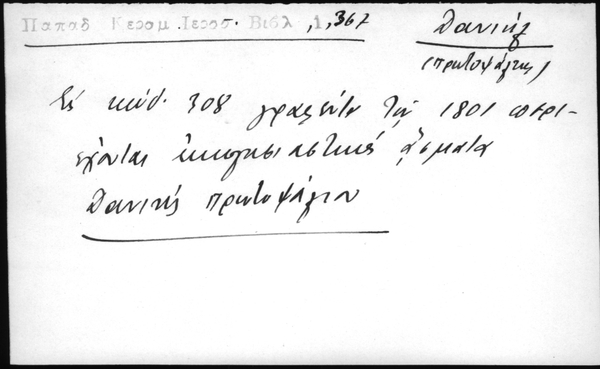 Παπαδ Κεραμ Ιεροσ. Βιβλ 1, 367
Δανιήλ
(πρωτοψάλτης)
Ἐν κώδ. 308 γραφέντι τῷ 1801 περι-
έχονται ἐκκλησιαστικά ᾄσματα
Δανιήλ πρωτοψάλτου